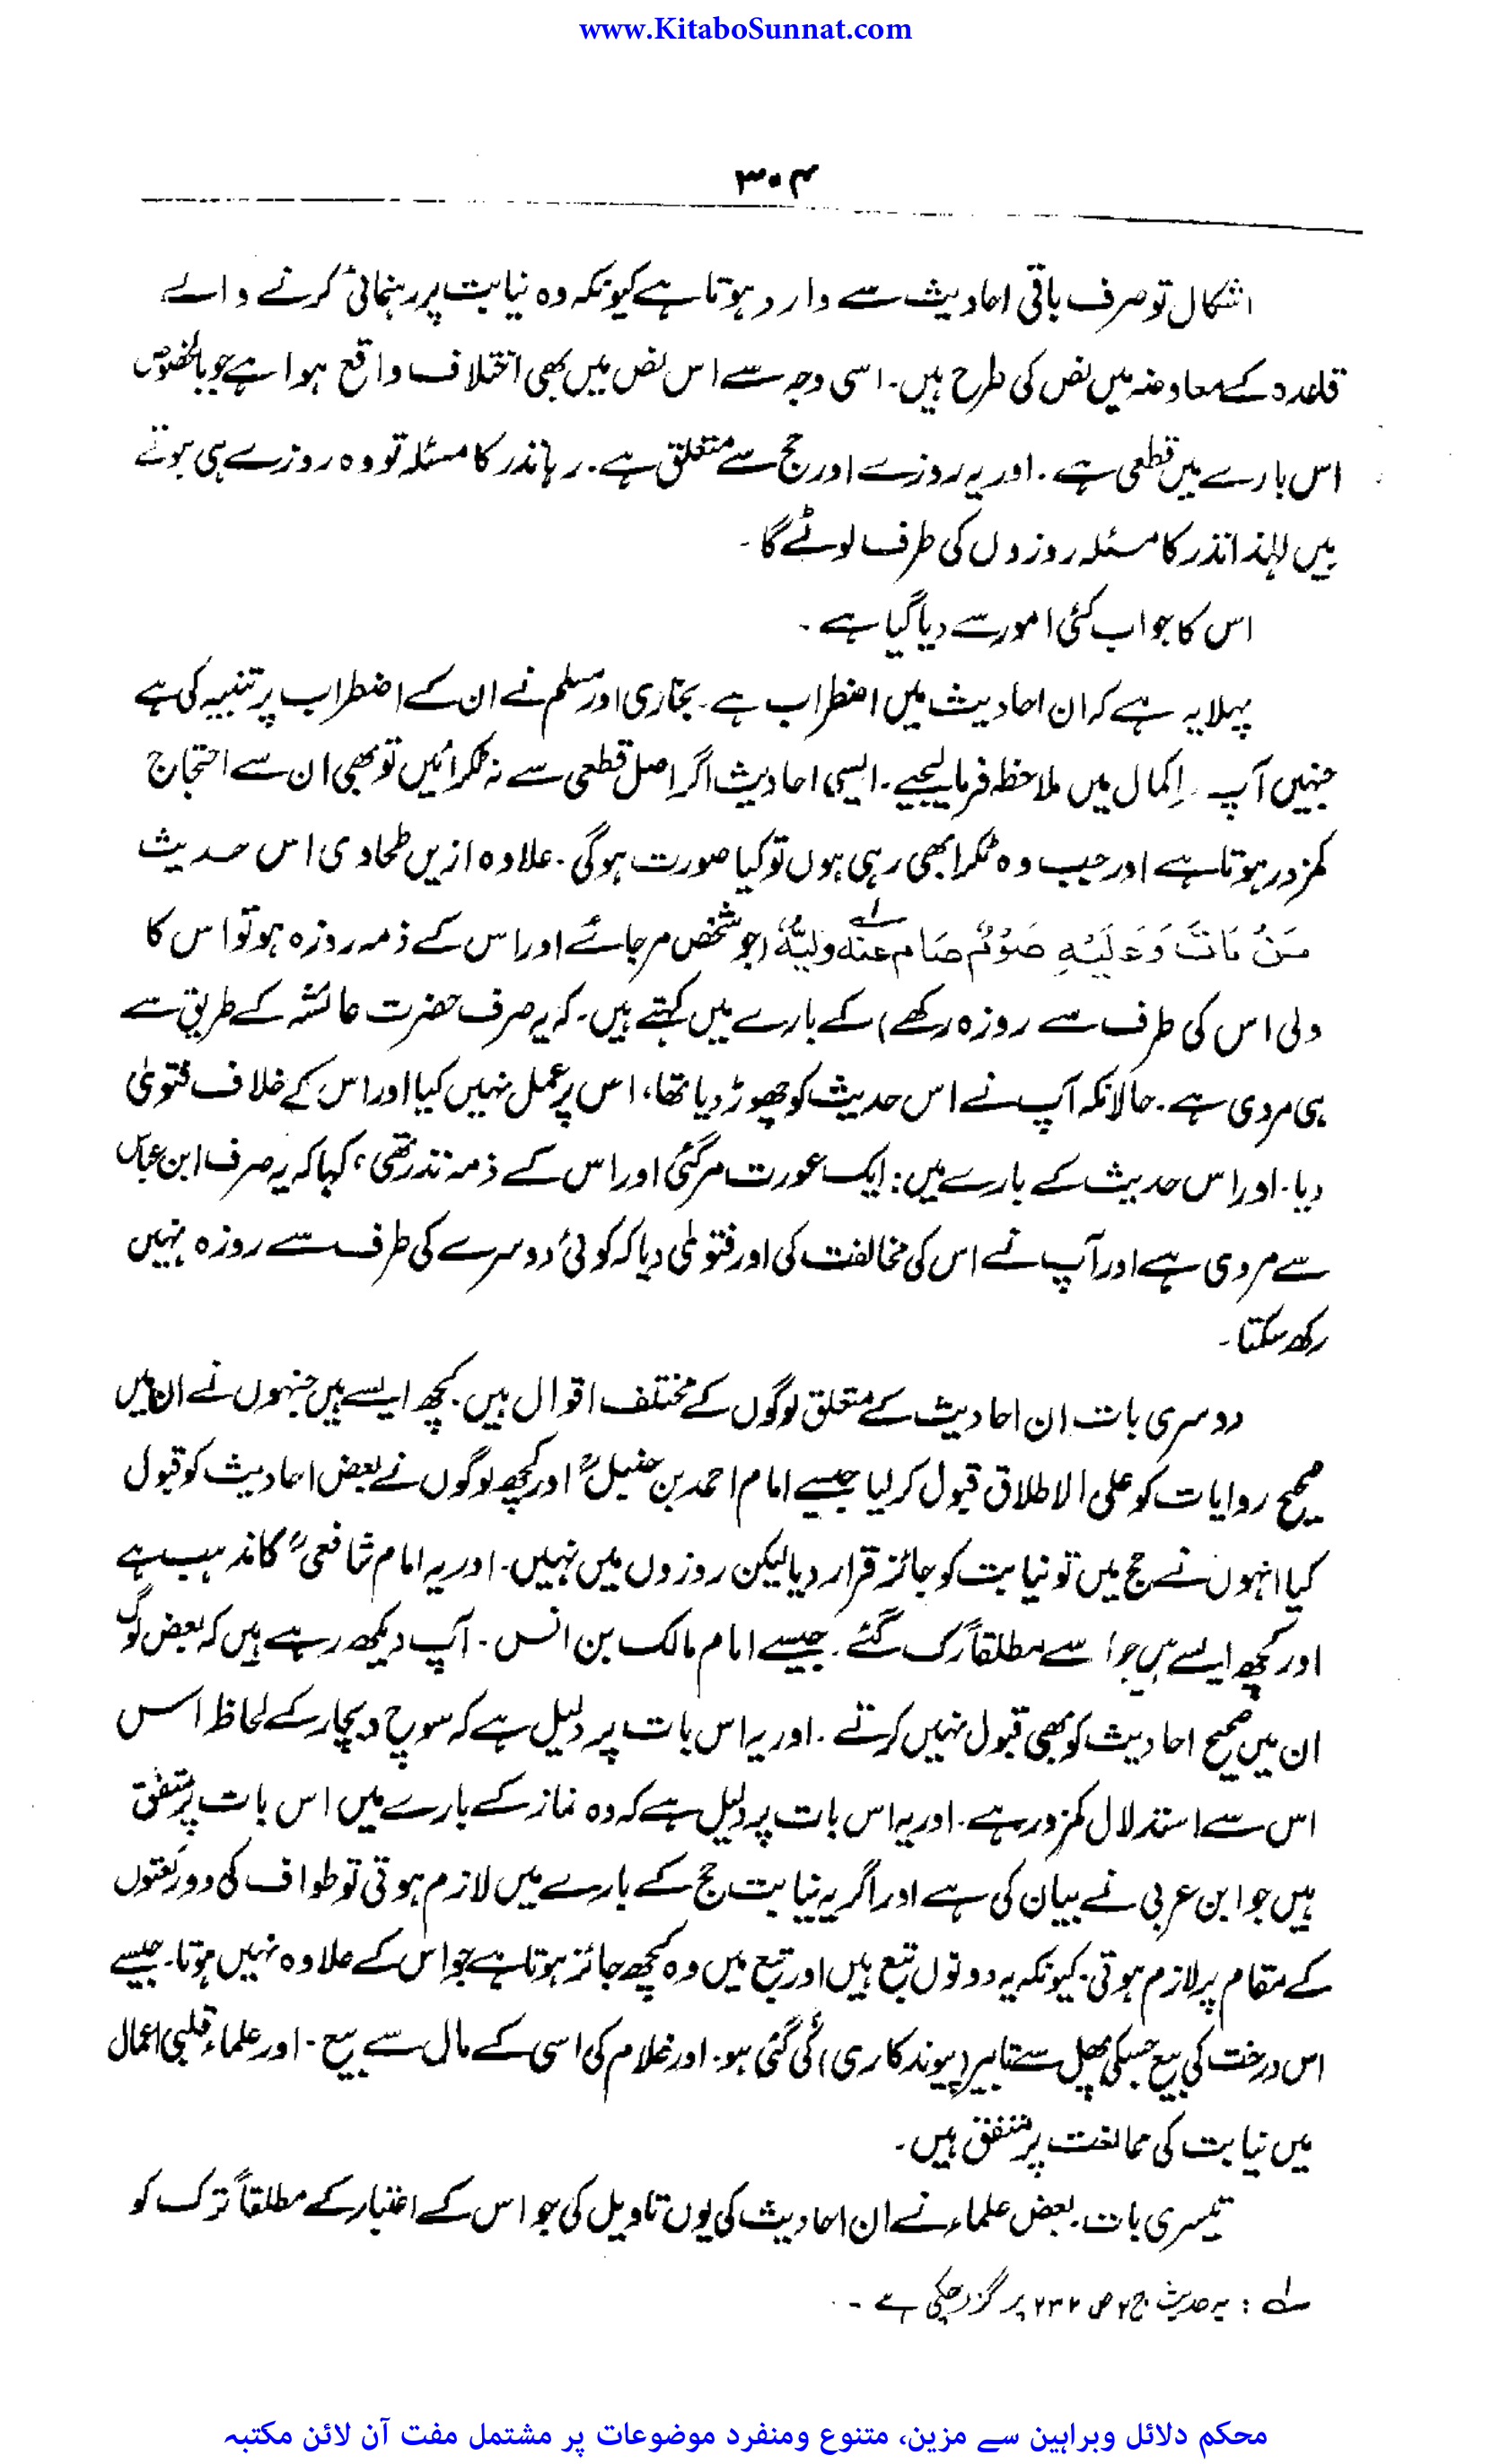 www.KitaboSunnat.com
۳۰۴
اشکال تو صرف باقی احادیث سے وارد ہوتا ہے کیونکہ وہ نیابت پر رہنمائی کرنے والے
قاعدہ کے معاوضہ میں نص کی طرح ہیں۔ اسی وجہ سے اس نص میں بھی اختلاف واقع ہوا ہے جو بالخصوص
اس بارے میں قطعی ہے۔ اور یہ روزے اور حج سے متعلق ہے۔ رہا نذر کا مسئلہ تو وہ روزے ہی ہوتے
ہیں لہٰذا نذر کا مسئلہ روزوں کی طرف لوٹے گا۔
اس کا جواب کئی امور سے دیا گیا ہے۔
پہلا یہ ہے کہ ان احادیث میں اضطراب ہے۔ بخاری اور مسلم نے ان کے اضطراب پر تنبیہ کی ہے
جنہیں آپ اِکمال میں ملاحظہ فرما لیجیے۔ ایسی احادیث اگر اصل قطعی سے نہ ٹکرائیں تو بھی ان سے احتجاج
کمزور ہوتا ہے اور جب وہ ٹکرا بھی رہی ہوں تو کیا صورت ہوگی۔ علاوہ ازیں طحاوی اس حدیث
مَنْ مَاتَ وَعَلَيْهِ صَوْمٌ صَامَ عَنْهُ وَلِيُّهُ لہ (جو شخص مر جائے اور اس کے ذمہ روزہ ہو تو اس کا
ولی اس کی طرف سے روزہ رکھے) کے بارے میں کہتے ہیں۔ کہ یہ صرف حضرت عائشہ کے طریق سے
ہی مروی ہے۔ حالانکہ آپ نے اس حدیث کو چھوڑ دیا تھا، اس پر عمل نہیں کیا اور اس کے خلاف فتویٰ
دیا۔ اور اس حدیث کے بارے میں: ایک عورت مر گئی اور اس کے ذمہ نذر تھی، کہا کہ یہ صرف ابن عباس
سے مروی ہے اور آپ نے اس کی مخالفت کی اور فتویٰ دیا کہ کوئی دوسرے کی طرف سے روزہ نہیں
رکھ سکتا۔
دوسری بات ان احادیث کے متعلق لوگوں کے مختلف اقوال ہیں۔ کچھ ایسے ہیں جنہوں نے ان میں
صحیح روایات کو علی الاطلاق قبول کر لیا جیسے امام احمد بن حنبلؒ اور کچھ لوگوں نے بعض احادیث کو قبول
کیا انہوں نے حج میں تو نیابت کو جائز قرار دیا لیکن روزوں میں نہیں۔ اور یہ امام شافعیؒ کا مذہب ہے
اور کچھ ایسے ہیں جو اسے مطلقاً رک گئے۔ جیسے امام مالک بن انس۔ آپ دیکھ رہے ہیں کہ بعض لوگ
ان میں صحیح احادیث کو بھی قبول نہیں کرتے۔ اور یہ اس بات پر دلیل ہے کہ سوچ و بچار کے لحاظ اس
اس سے استدلال کمزور ہے۔ اور یہ اس بات پر دلیل ہے کہ وہ نماز کے بارے میں اس بات پر متفق
ہیں جو ابن عربی نے بیان کی ہے اور اگر یہ نیابت حج کے بارے میں لازم ہوتی تو طواف کی دو رکعتوں
کے مقام پر لازم ہوتی۔ کیونکہ یہ دونوں تبع ہیں اور تبع میں وہ کچھ جائز ہوتا ہے جو اس کے علاوہ نہیں ہوتا۔ جیسے
اس درخت کی بیع جسکی پھل سے تابیر (پیوندکاری) کی گئی ہو۔ اور غلام کی اسی کے مال سے بیع۔ اور علماء قلبی اعمال
میں نیابت کی ممانعت پر متفق ہیں۔
تیسری بات۔ بعض علماء نے ان احادیث کی یوں تاویل کی جو اس کے اعتبار کے مطلقاً ترک کو
لہ : یہ حدیث ج ۲ ص ۲۳۲ پر گزر چکی ہے۔
محکم دلائل وبراہین سے مزین، متنوع ومنفرد موضوعات پر مشتمل مفت آن لائن مکتبہ